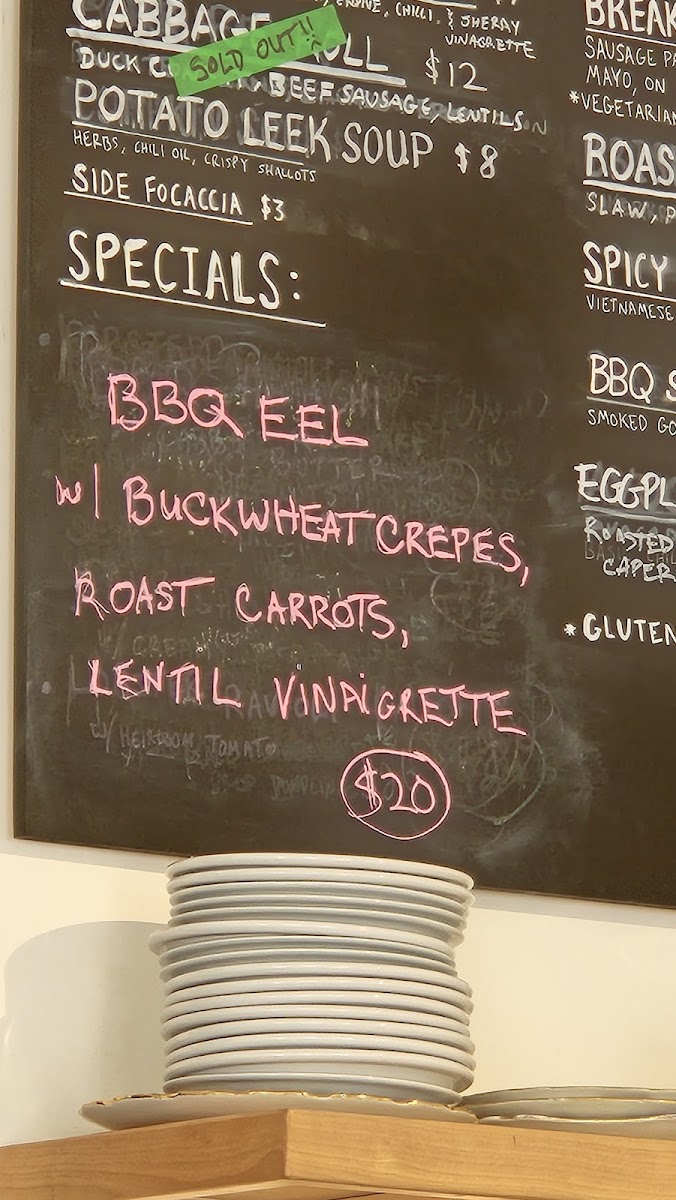 CHILLI, & SHERAY
VINAGRETTE
CABBAGE
SOLD OUT!!
$12
DUCK
BEEF SAUSAGE, LENTILS
POTATO LEEK SOUP $8
HERBS, CHILI OIL, CRISPY SHALLOTS
SIDE FOCACCIA $3
SPECIALS:
BBQ EEL
w/ BUCKWHEAT CREPES,
ROAST CARROTS,
LENTIL VINAIGRETTE
$20
BREAK
SAUSAGE PA
MAYO, ON
*VEGETARIAN
ROAS
SLAW, P
SPICY
VIETNAMESE
BBQ S
SMOKED GO
EGGPL
ROASTED
CAPER
*GLUTEN